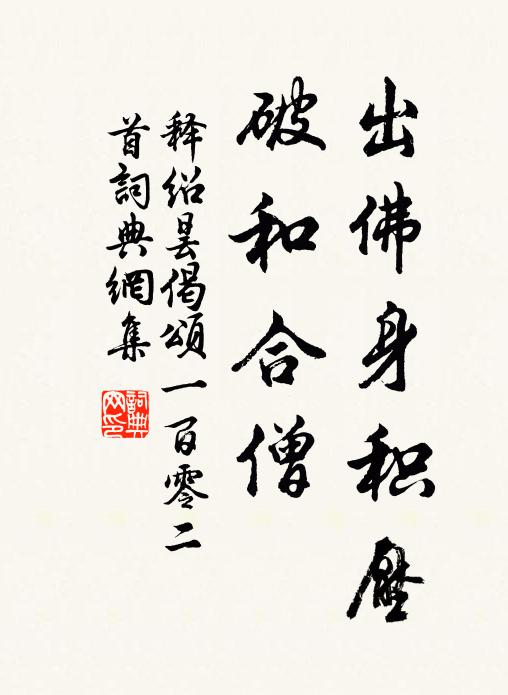 出佛身积壓
破和合僧
释绍昙偈頌一百零二
首詞典網集
詞典网印